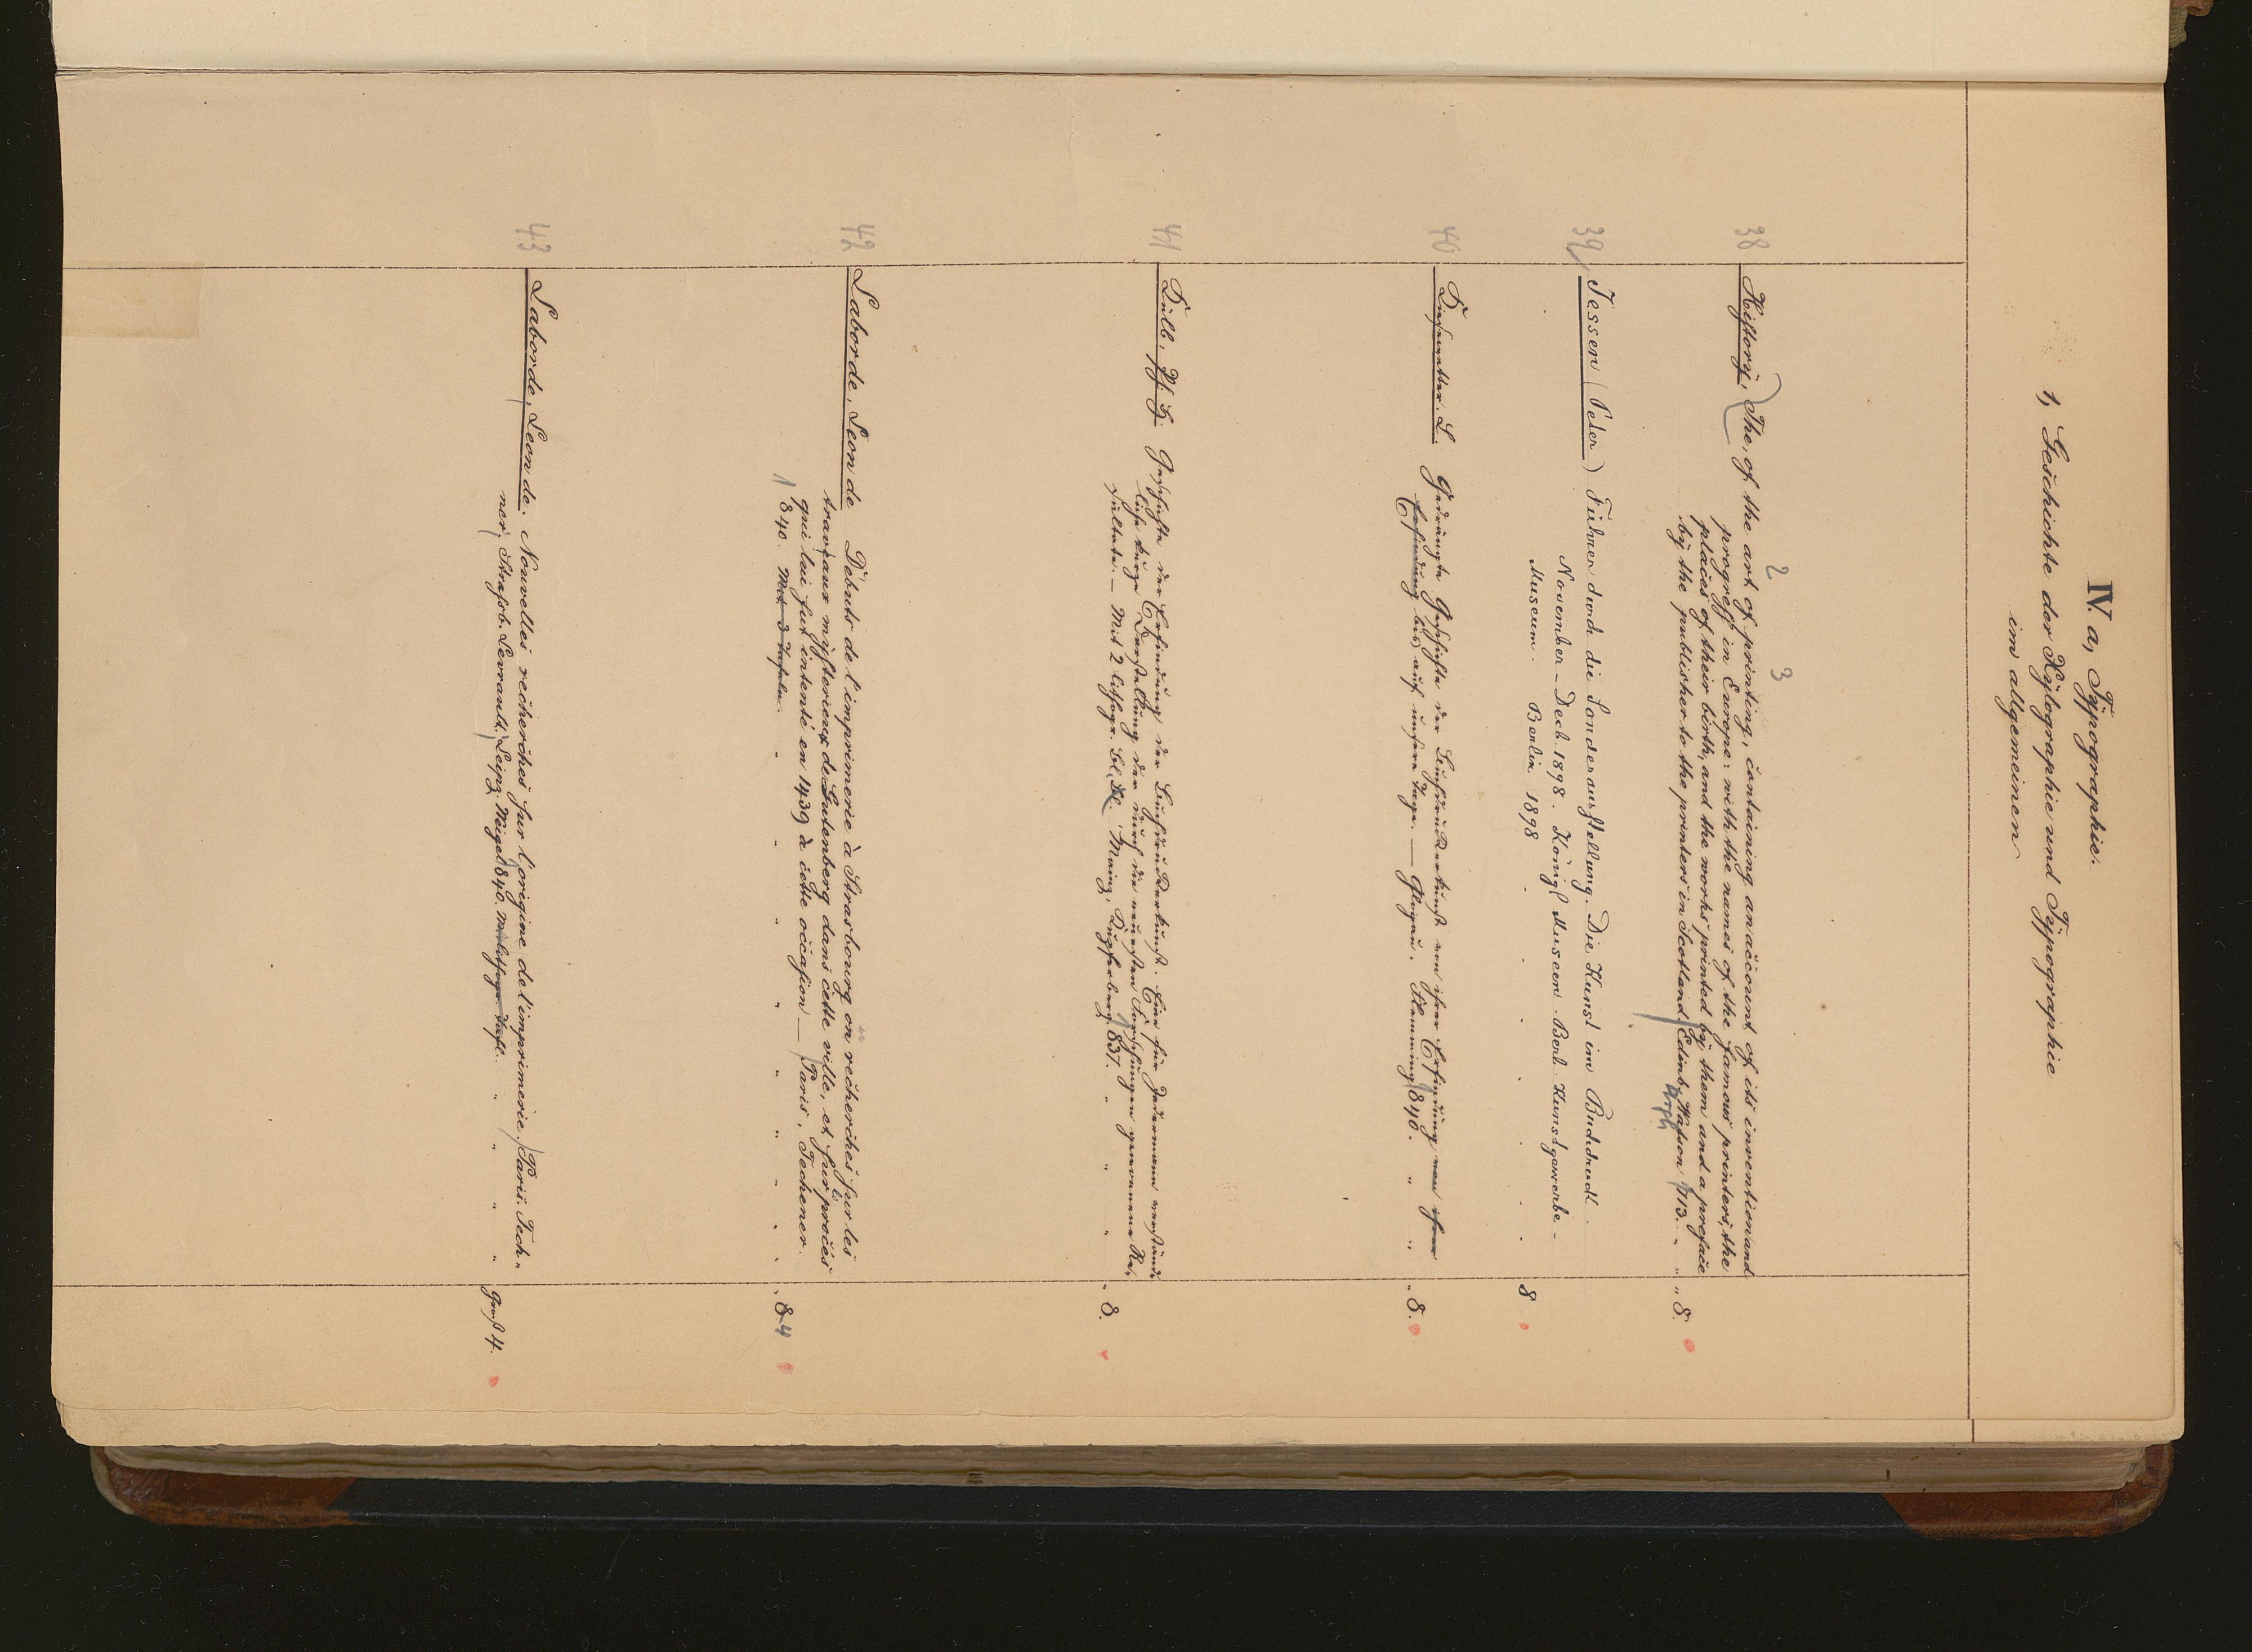 IV. a, Typographie.
1, Geschichte der Xylographie und Typographie
im allgemeinen
38 History, The, of the art of printing, containing an account of its invention and
2 3
progreß in Europe: with the names of the famous printers, the
places of their birth, and the works printed by them and a preface
by the publisher to the printers in Scotland. Edinb. Watson 1713. " " " 8.
39 Jessen (Peter) Führer durch die Sonderausstellung. Die Kunst im Buchdruck.
November – Decb. 1898. Königl Museen Berl. Kunstgewerbe-
Museum. Berlin 1898 8
40 Gedrängte Geschichte der Buchdruckerkunst von ihrer Erfindung von ihrer
Erfindung bis auf unsere Tage. — Glogau. Flemming 1840. " " " 8.
41 Külb, Ph. H. Geschichte der Erfindung der Buchdruckerkunst. Eine für Jedermann verständ-
liche kurze Darstellung der durch die neuesten Forschungen gewonnene Re-
sultate. — Mit 2 lithogr. Bl. Mainz, Kupferberg 1837. " " " " 8.
42 Laborde, Leon de Débuts de l'imprimerie à Strasbourg ou recherches sur les
travaux mysterieux de Gutenberg dans cette ville, et sur le procès
qui lui fut intenté en 1439 à cette occasion — Paris, Techener.
1840. Mit 3 Tafeln. " " " " " " " " 8 4
43 Laborde, Leon de. Nouvelles recherches sur l'origine de l'imprimerie. Paris. Tech-
ner, Strasb. Levrault. Leipz. Weigel 840. M. lithogr. Tafl. " " " " Groß 4.